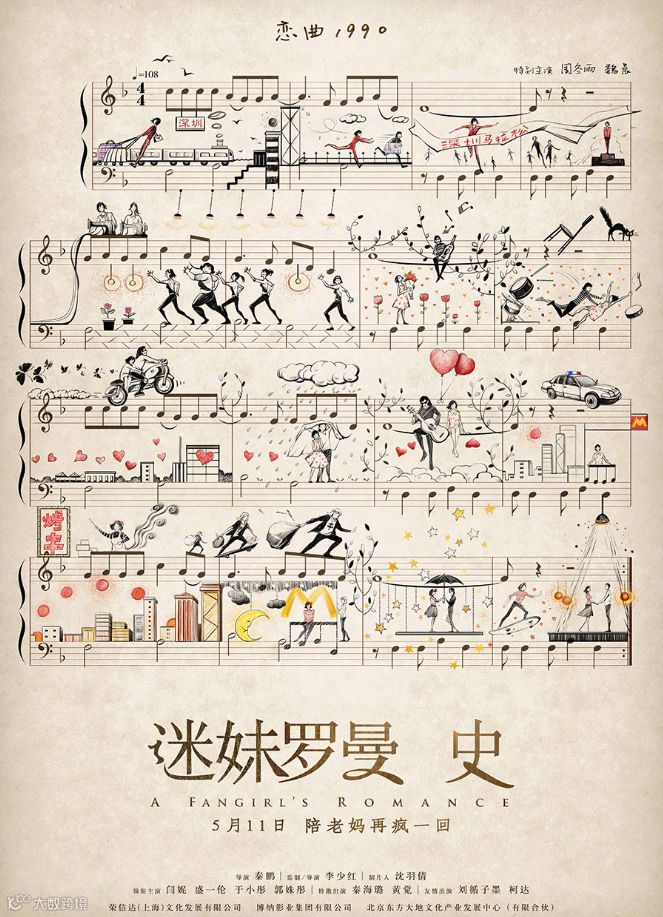 恋曲1990
特别主演 周冬雨 魏晨
♩=108
4
4
深圳
深圳马拉松
M
烤串
M
迷妹罗曼 史
A FANGIRL'S ROMANCE
5月11日 陪老妈再疯一回
导演 秦鹏 | 监制/导演 李少红 | 制片人 沈羽倩
领衔主演 闫妮 盛一伦 于小彤 郭姝彤 | 特邀出演 秦海璐 黄觉 | 友情出演 刘循子墨 柯达
荣信达(上海)文化发展有限公司 博纳影业集团有限公司 北京东方大地文化产业发展中心(有限合伙)
大数跨境